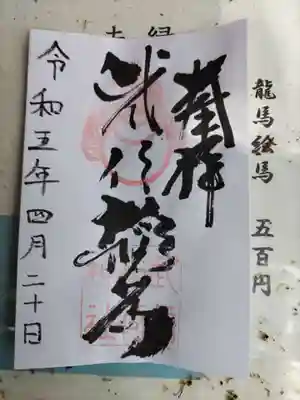 奉拝
武信稲荷
令和五年四月二十日
龍馬絵馬 五百円